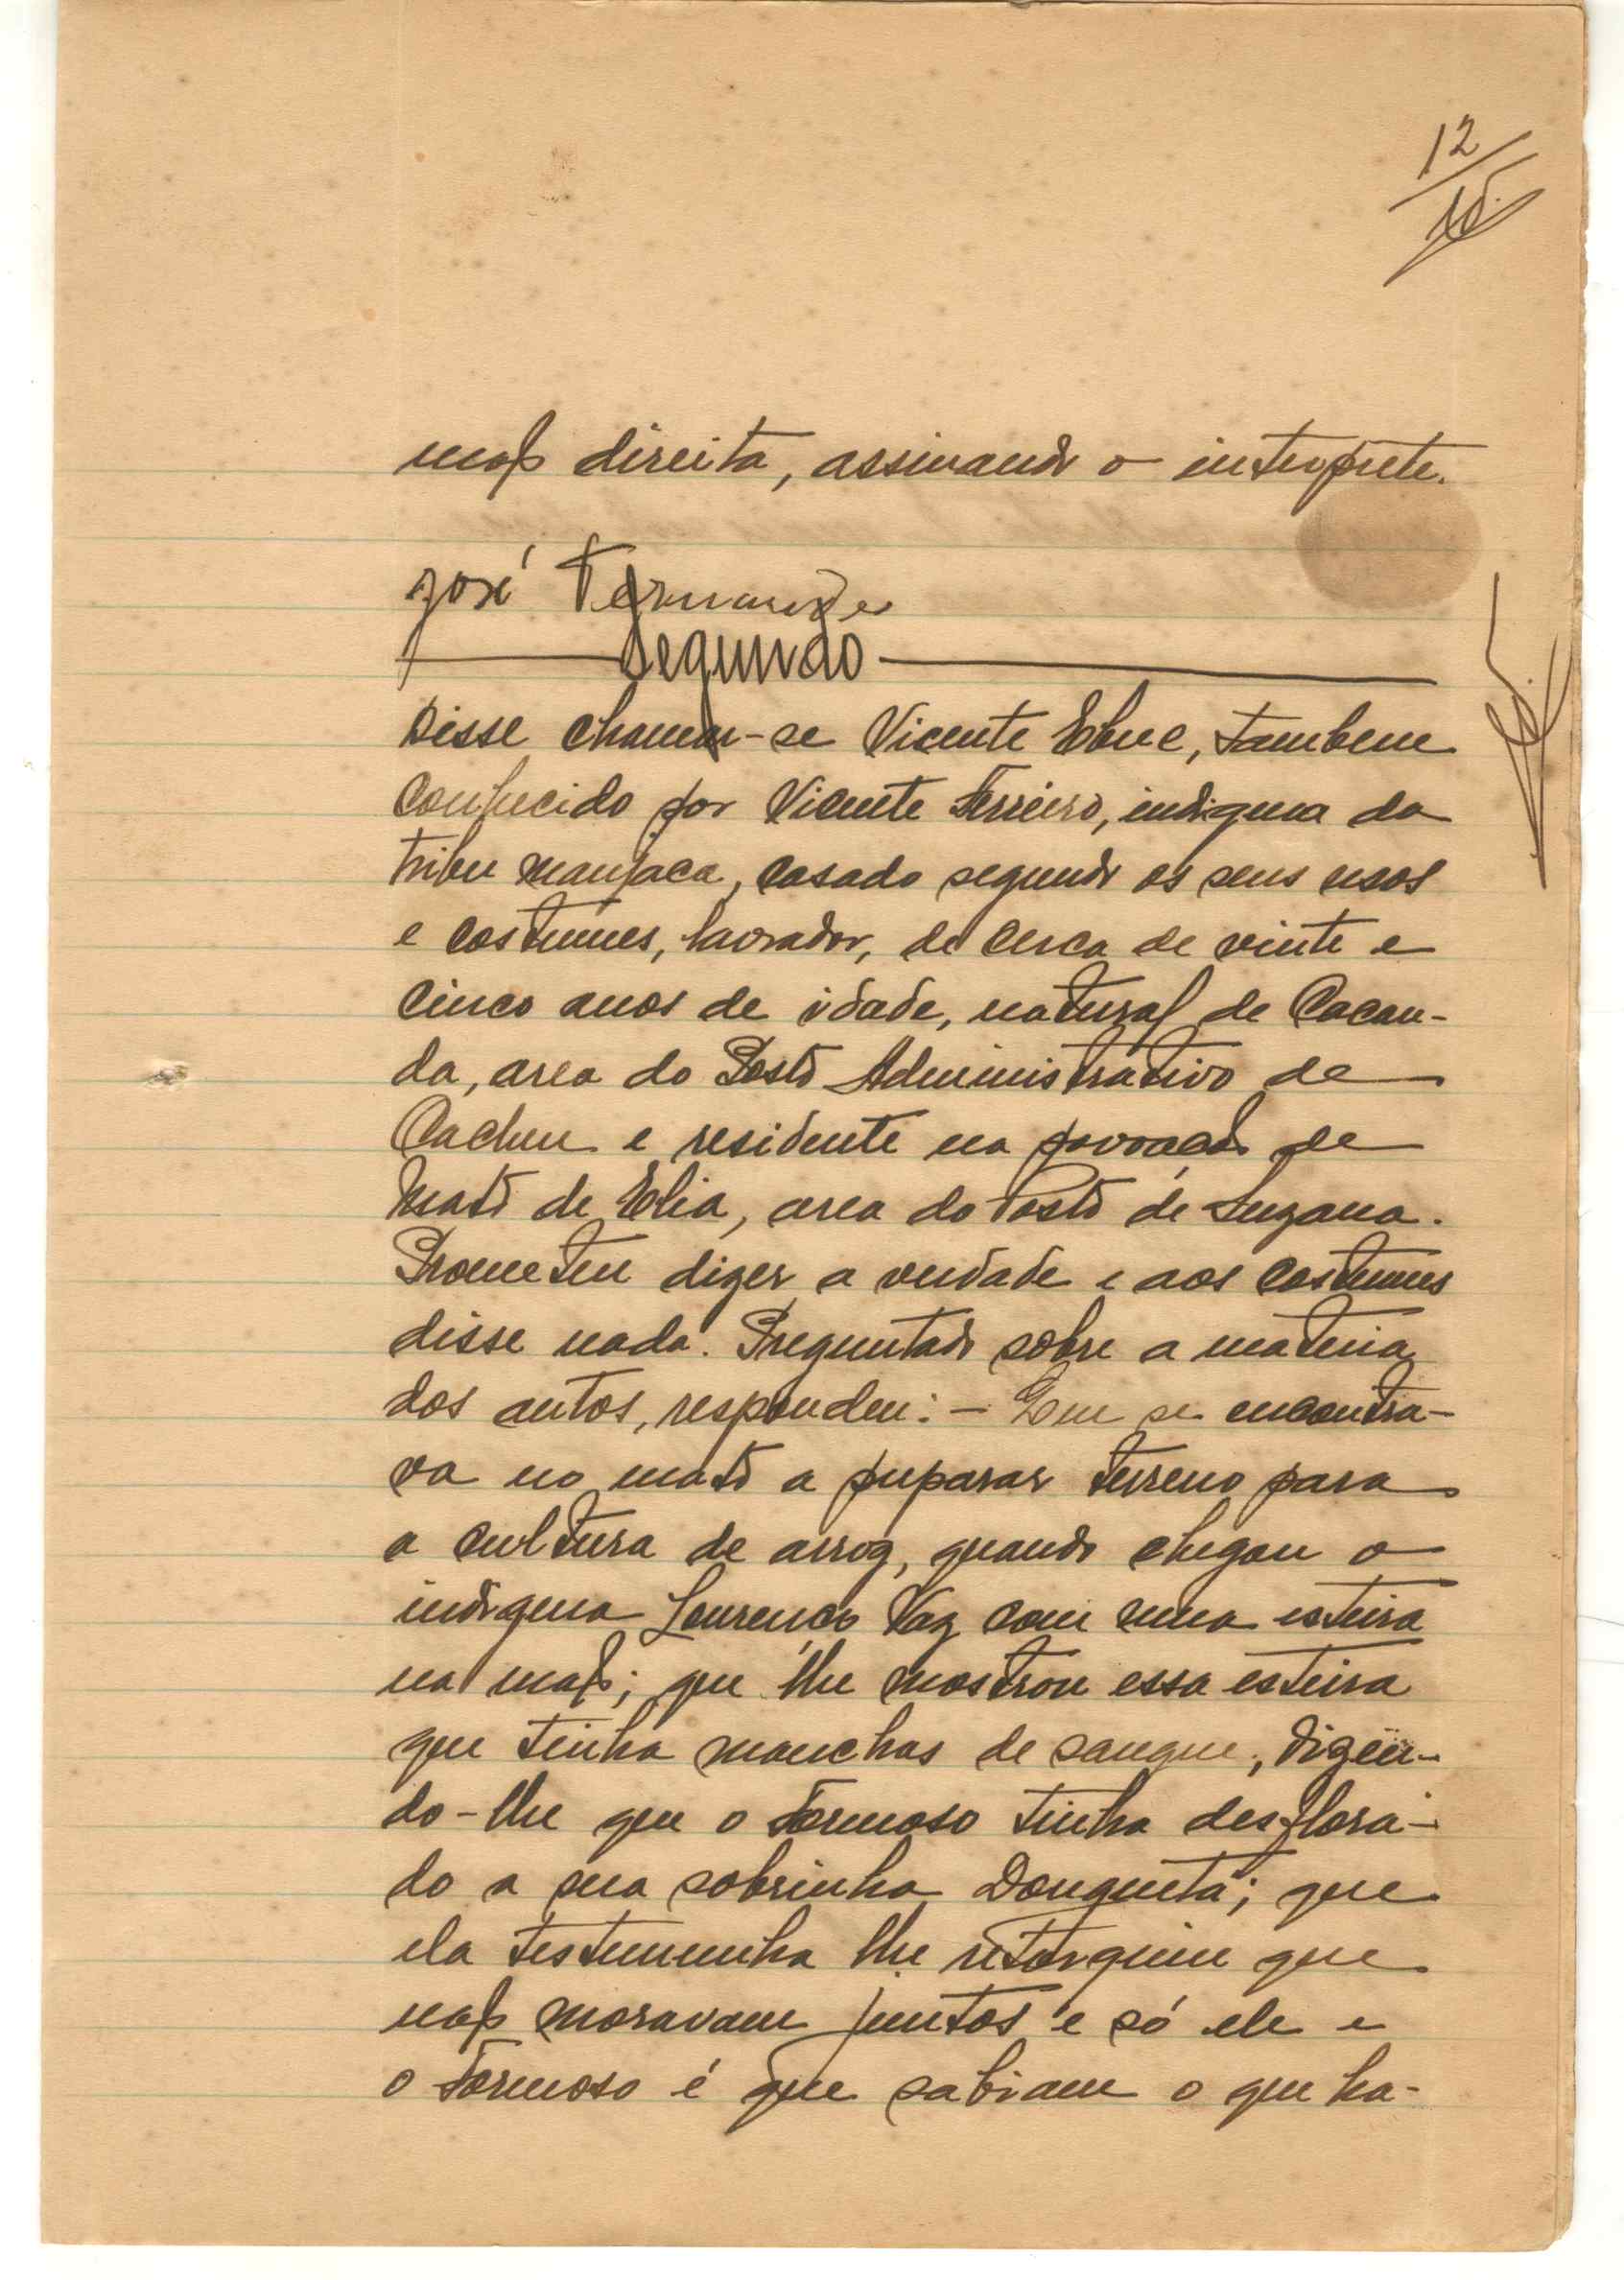 12
mão direita, assinando o interprete.
José Fernandes
Segundo
Disse chamar-se Vicente, tambem
conhecido por Vicente Ferreiro, indigena da
tribu manjaca, casado segundo os seus usos
e costumes, lavrador, de cerca de vinte e
cinco anos de idade, natural de Cacan-
da, area do Posto Administrativo de
Cacheu e residente na povoação de
Mato de Elia, area do Posto de Suzana.
Prometeu dizer a verdade e aos costumes
disse nada. Preguntado sobre a materia
dos autos, respondeu: - Que se encontra-
va no mato a preparar terreno para
a cultura de arroz, quando chegou o
indigena Lourenço Vaz com uma esteira
na mão; que lhe mostrou essa esteira
que tinha manchas de sangue, dizen-
do-lhe que o Formoso tinha desflora-
do a sua sobrinha Donguetá; que
ela testemunha lhe retorquiu que
não moravam juntos e só ele e
o Formoso é que sabiam o que ha-